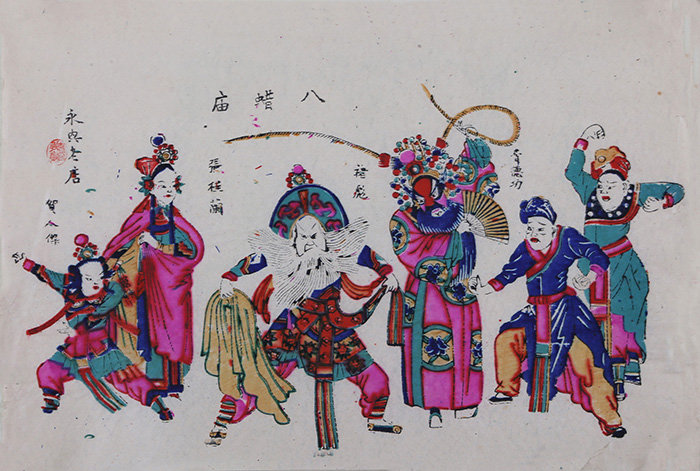 八蜡庙
費德功
褚彪
張桂蘭
賀人傑
永興老店